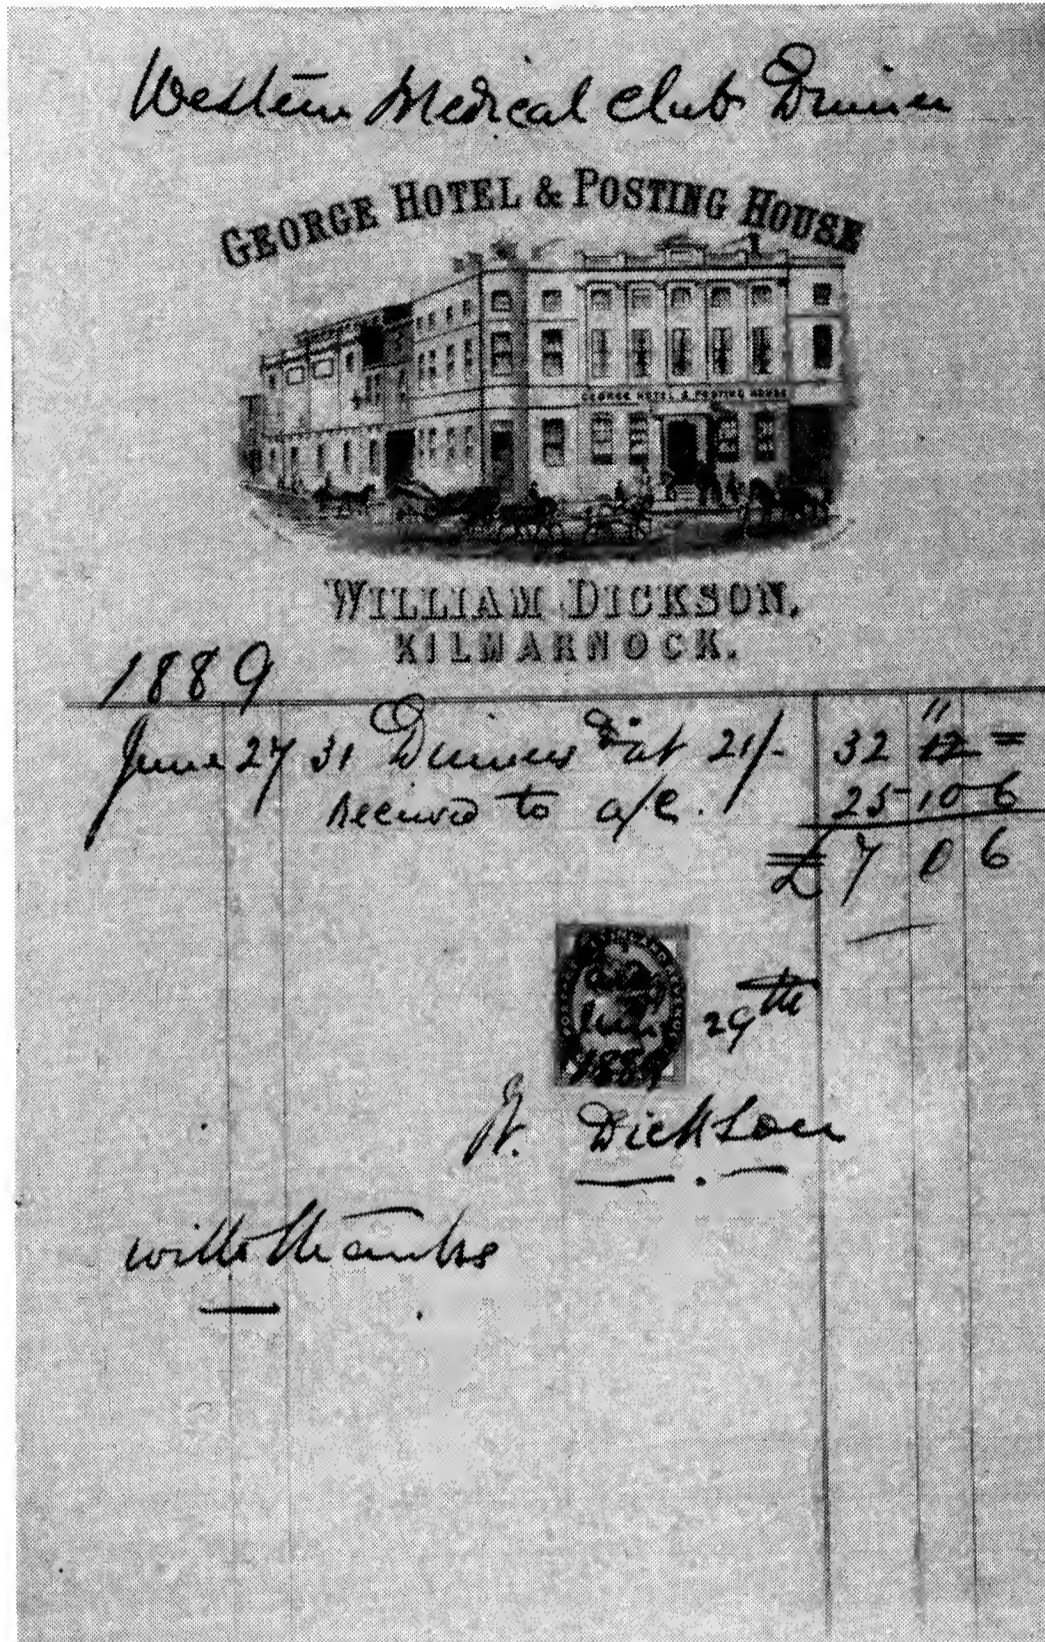 Western Medical Club Dinner
GEORGE HOTEL & POSTING HOUSE
GEORGE HOTEL & POSTING HOUSE
WILLIAM DICKSON,
KILMARNOCK.
1889
"
June 27 31 Dinners at 21/- 32 12 =
Received to a/c. 25 10 6
£ 7 0 6
29th
1889
W. Dickson
with thanks